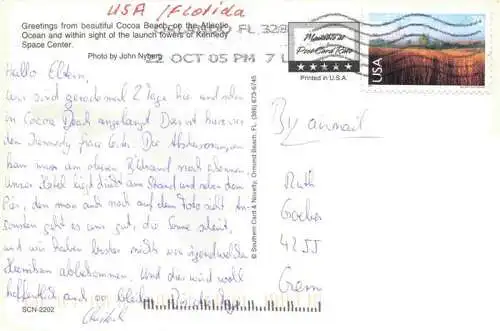 USA / Florida
Greetings from beautiful Cocoa Beach, on the Atlantic
Ocean and within sight of the launch towers of Kennedy
Space Center.
Photo by John Nyberg
ORLANDO FL 328
22 OCT 05 PM 7 L
Post Card Rate
Printed in U.S.A.
USA
Hallo Eltern,
wir sind gerade mal 2 Tage hier und schon
in Cocoa Beach angelangt. Das ist hier vor
den Kennedy Space Center. Die
kann man am oberen Bildrand noch erkennen.
Unser Hotel liegt direkt am Strand und neben dem
Pier, den man auch noch auf dem Foto sieht. An-
sonsten geht es uns gut, die Sonne scheint,
und wir haben bisher nichts von irgendwelchen
abbekommen. Und das wird wohl
hoffentlich auch so bleiben.
By airmail
Ruth
4255
© Southern Card & Novelty, Ormond Beach, FL (386) 673-6745
SCN-2202